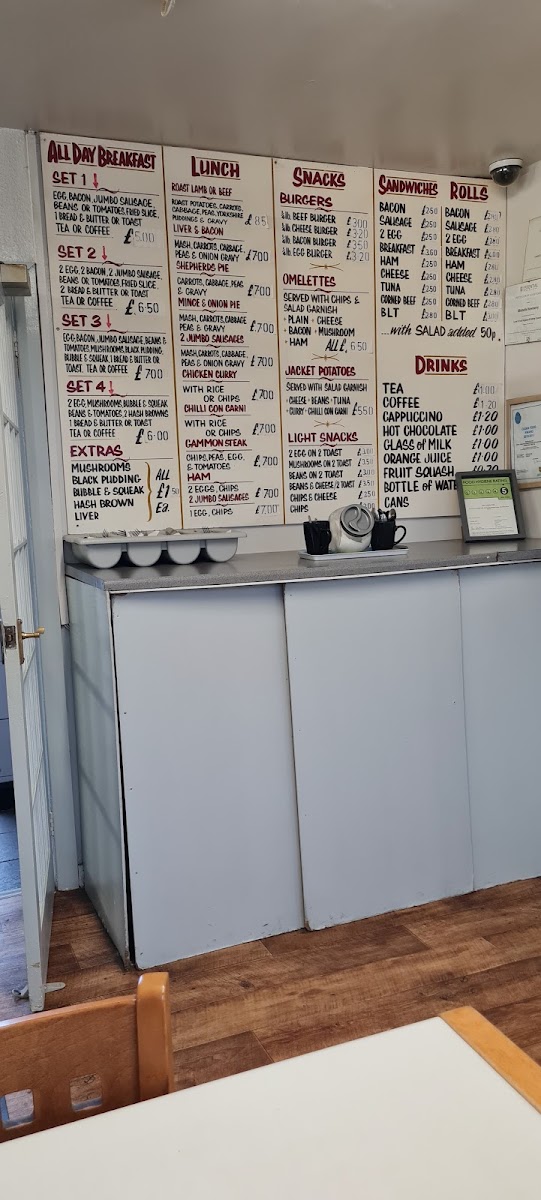 ALL DAY BREAKFAST
SET 1
EGG, BACON, JUMBO SAUSAGE,
BEANS OR TOMATOES, FRIED SLICE,
1 BREAD & BUTTER OR TOAST
TEA OR COFFEE £5.00
SET 2
2 EGG, 2 BACON, 2 JUMBO SAUSAGE,
BEANS OR TOMATOES, FRIED SLICE,
2 BREAD & BUTTER OR TOAST
TEA OR COFFEE £6.50
SET 3
EGG, BACON, JUMBO SAUSAGE, BEANS &
TOMATOES, MUSHROOMS, BLACK PUDDING,
BUBBLE & SQUEAK, 1 BREAD & BUTTER OR
TOAST. TEA OR COFFEE £7.00
SET 4
2 EGG, MUSHROOMS, BUBBLE & SQUEAK
BEANS & TOMATOES, 2 HASH BROWNS
1 BREAD & BUTTER OR TOAST
TEA OR COFFEE £6.00
EXTRAS
MUSHROOMS
BLACK PUDDING
BUBBLE & SQUEAK
HASH BROWN
LIVER
ALL
£1.50
Ea.
LUNCH
ROAST LAMB OR BEEF
ROAST POTATOES, CARROTS,
CABBAGE, PEAS, YORKSHIRE
PUDDINGS & GRAVY
LIVER & BACON
MASH, CARROTS, CABBAGE,
PEAS & ONION GRAVY £7.00
SHEPHERDS PIE
CARROTS, CABBAGE, PEAS
& GRAVY £7.00
MINCE & ONION PIE
MASH, CARROTS, CABBAGE
PEAS & GRAVY £7.00
2 JUMBO SAUSAGES
MASH, CARROTS, CABBAGE,
PEAS & ONION GRAVY £7.00
CHICKEN CURRY
WITH RICE
OR CHIPS £7.00
CHILLI CON CARNI
WITH RICE
OR CHIPS £7.00
GAMMON STEAK
CHIPS, PEAS, EGG,
& TOMATOES £7.00
HAM
2 EGGS, CHIPS £7.00
2 JUMBO SAUSAGES
1 EGG, CHIPS £7.00
SNACKS
BURGERS
¼lb BEEF BURGER £3.00
¼lb CHEESE BURGER £3.20
¼lb BACON BURGER £3.50
¼lb EGG BURGER £3.20
OMELETTES
SERVED WITH CHIPS &
SALAD GARNISH
• PLAIN • CHEESE
• BACON • MUSHROOM
• HAM ALL £6.50
JACKET POTATOES
SERVED WITH SALAD GARNISH
• CHEESE • BEANS • TUNA
• CURRY • CHILLI CON CARNI £5.50
LIGHT SNACKS
2 EGG ON 2 TOAST
MUSHROOMS ON 2 TOAST
BEANS ON 2 TOAST
BEANS & CHEESE / 2 TOAST
CHIPS & CHEESE
CHIPS
SANDWICHES
BACON £2.50
SAUSAGE £2.50
2 EGG £2.50
BREAKFAST
HAM £2.50
CHEESE £2.50
TUNA £2.50
CORNED BEEF £2.50
BLT £2.80
ROLLS
BACON
SAUSAGE
2 EGG
BREAKFAST
HAM
CHEESE
TUNA
CORNED BEEF
BLT
...with SALAD added 50p
DRINKS
TEA £1.00
COFFEE £1.20
CAPPUCCINO £1.20
HOT CHOCOLATE £1.00
GLASS of MILK £1.00
ORANGE JUICE £1.00
FRUIT SQUASH
BOTTLE of
CANS
FOOD HYGIENE RATING
5